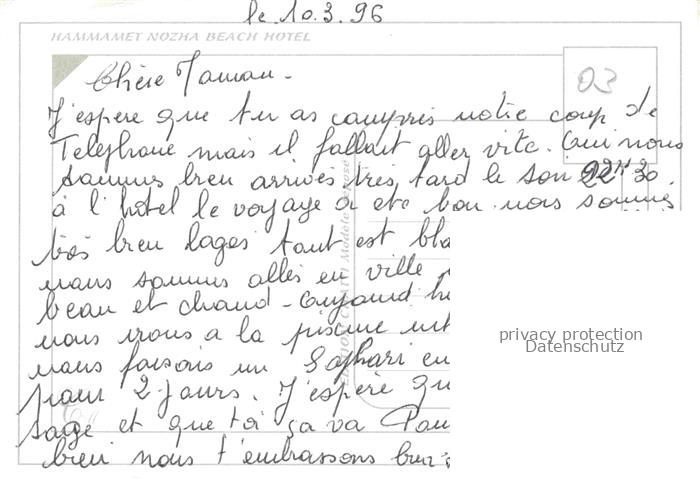 le 10.3.96
HAMMAMET NOZHA BEACH HOTEL
03
Chère Maman -
J'espère que tu as compris notre coup de
Telephone mais il fallait aller vite. Oui nous
sommes bien arrivés très tard le soir 22H30
à l'hôtel le voyage a ete bon nous sommes
très bien logés tout est bla
nous sommes allés en ville
beau et chaud - Aujourd h
nous irons a la piscine int
nous faisons un Saphari en
pour 2 jours. J'espère qu
sage et que toi ça va Pau
bien nous t'embrassons bien
privacy protection
Datenschutz